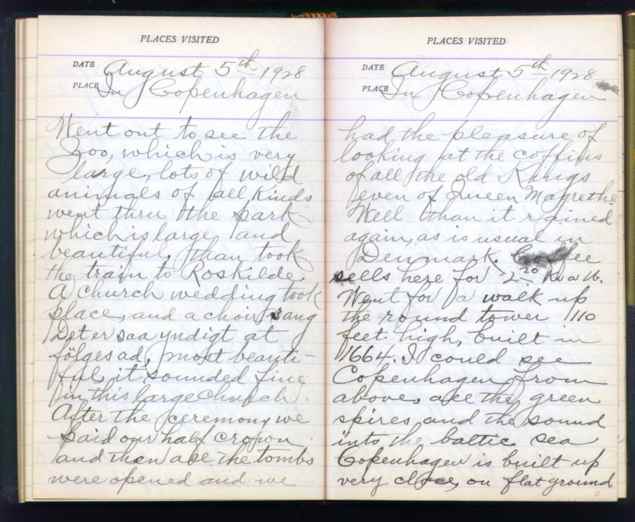 PLACES VISITED
DATE August 5th 1928
PLACE In Copenhagen
Went out to see the
Zoo, which is very
large, lots of wild
animals of all kinds
went thru the park
which is large and
beautiful, than took
the train to Roskilde
A church wedding took
place, and a choir sang
Det er saa yndigt at
følges ad, most beauti-
ful, it sounded fine
in this large church.
After the ceremony we
paid our half crown
and then all the tombs
were opened and we
PLACES VISITED
DATE August 5th 1928
PLACE In Copenhagen
had the pleasure of
looking at the coffins
of all the old Kings
even of Queen Magrethe
Well than it rained
again, as is usual in
Denmark.
sells here for 2.20 Kr a lb.
Went for a walk up
the round tower 110
feet high, built in
1664. I could see
Copenhagen from
above, all the green
spires and the sound
into the baltic sea
Copenhagen is built up
very close, on flat ground